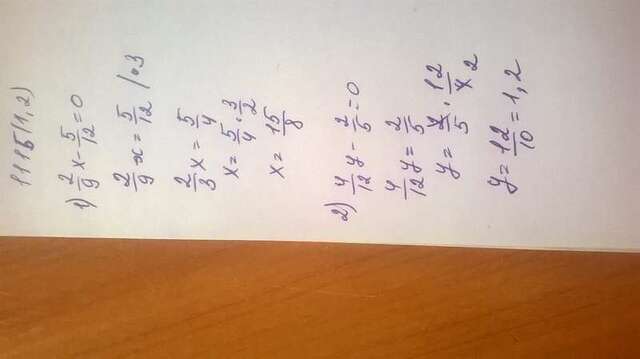 1115(1,2)
1) 2/9 x - 5/12 = 0
2/9 x = 5/12 /·3
2/3 x = 5/4
x = 5/4 · 3/2
x = 15/8
2) 4/12 y - 2/5 = 0
4/12 y = 2/5
y = 2/5 · 12/4 2
y = 12/10 = 1,2